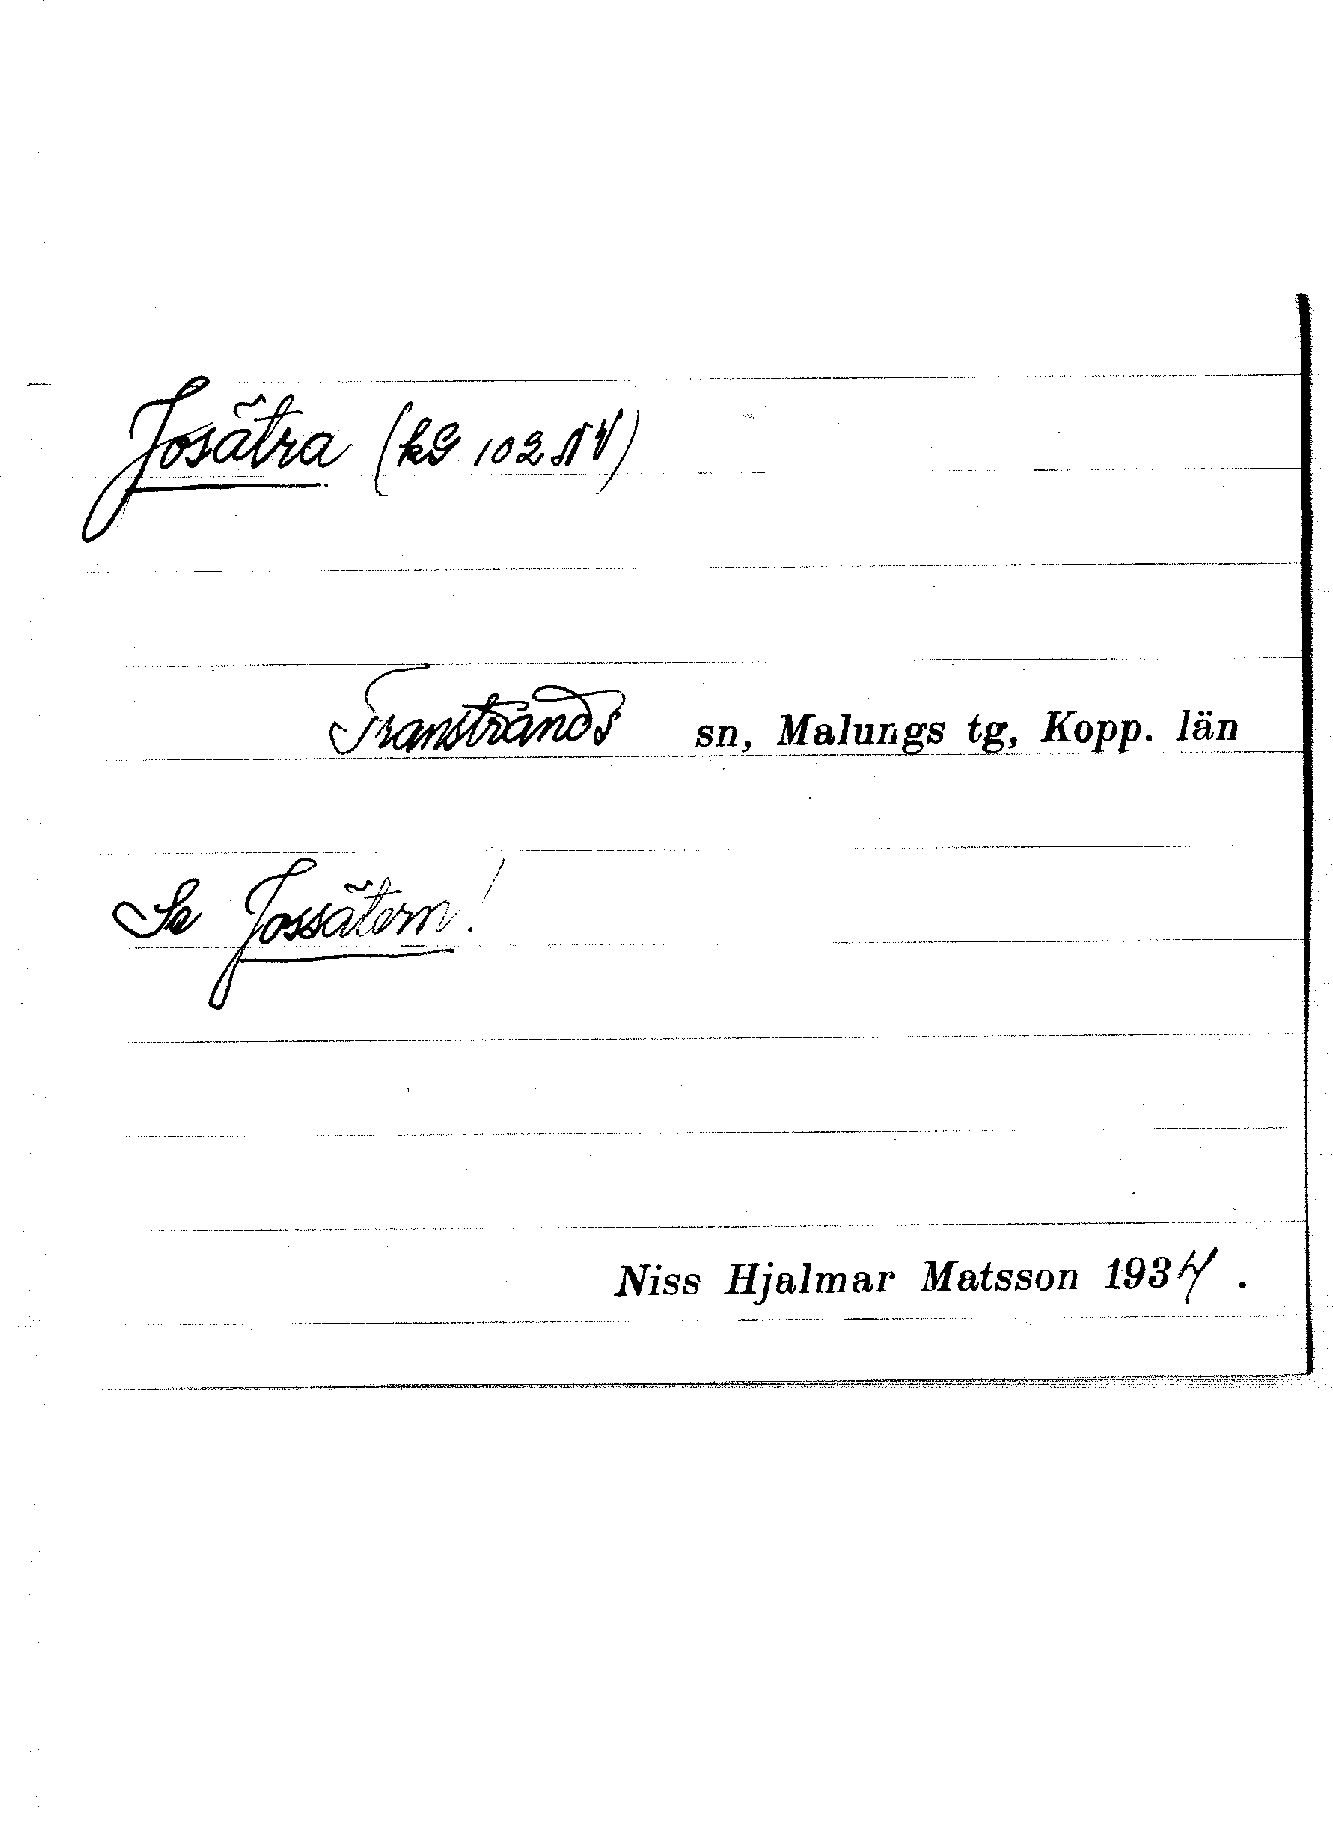 Josätra (kG 102 NV)
Transtrands sn, Malungs tg, Kopp. län
Se Jossätern!
Niss Hjalmar Matsson 1934.